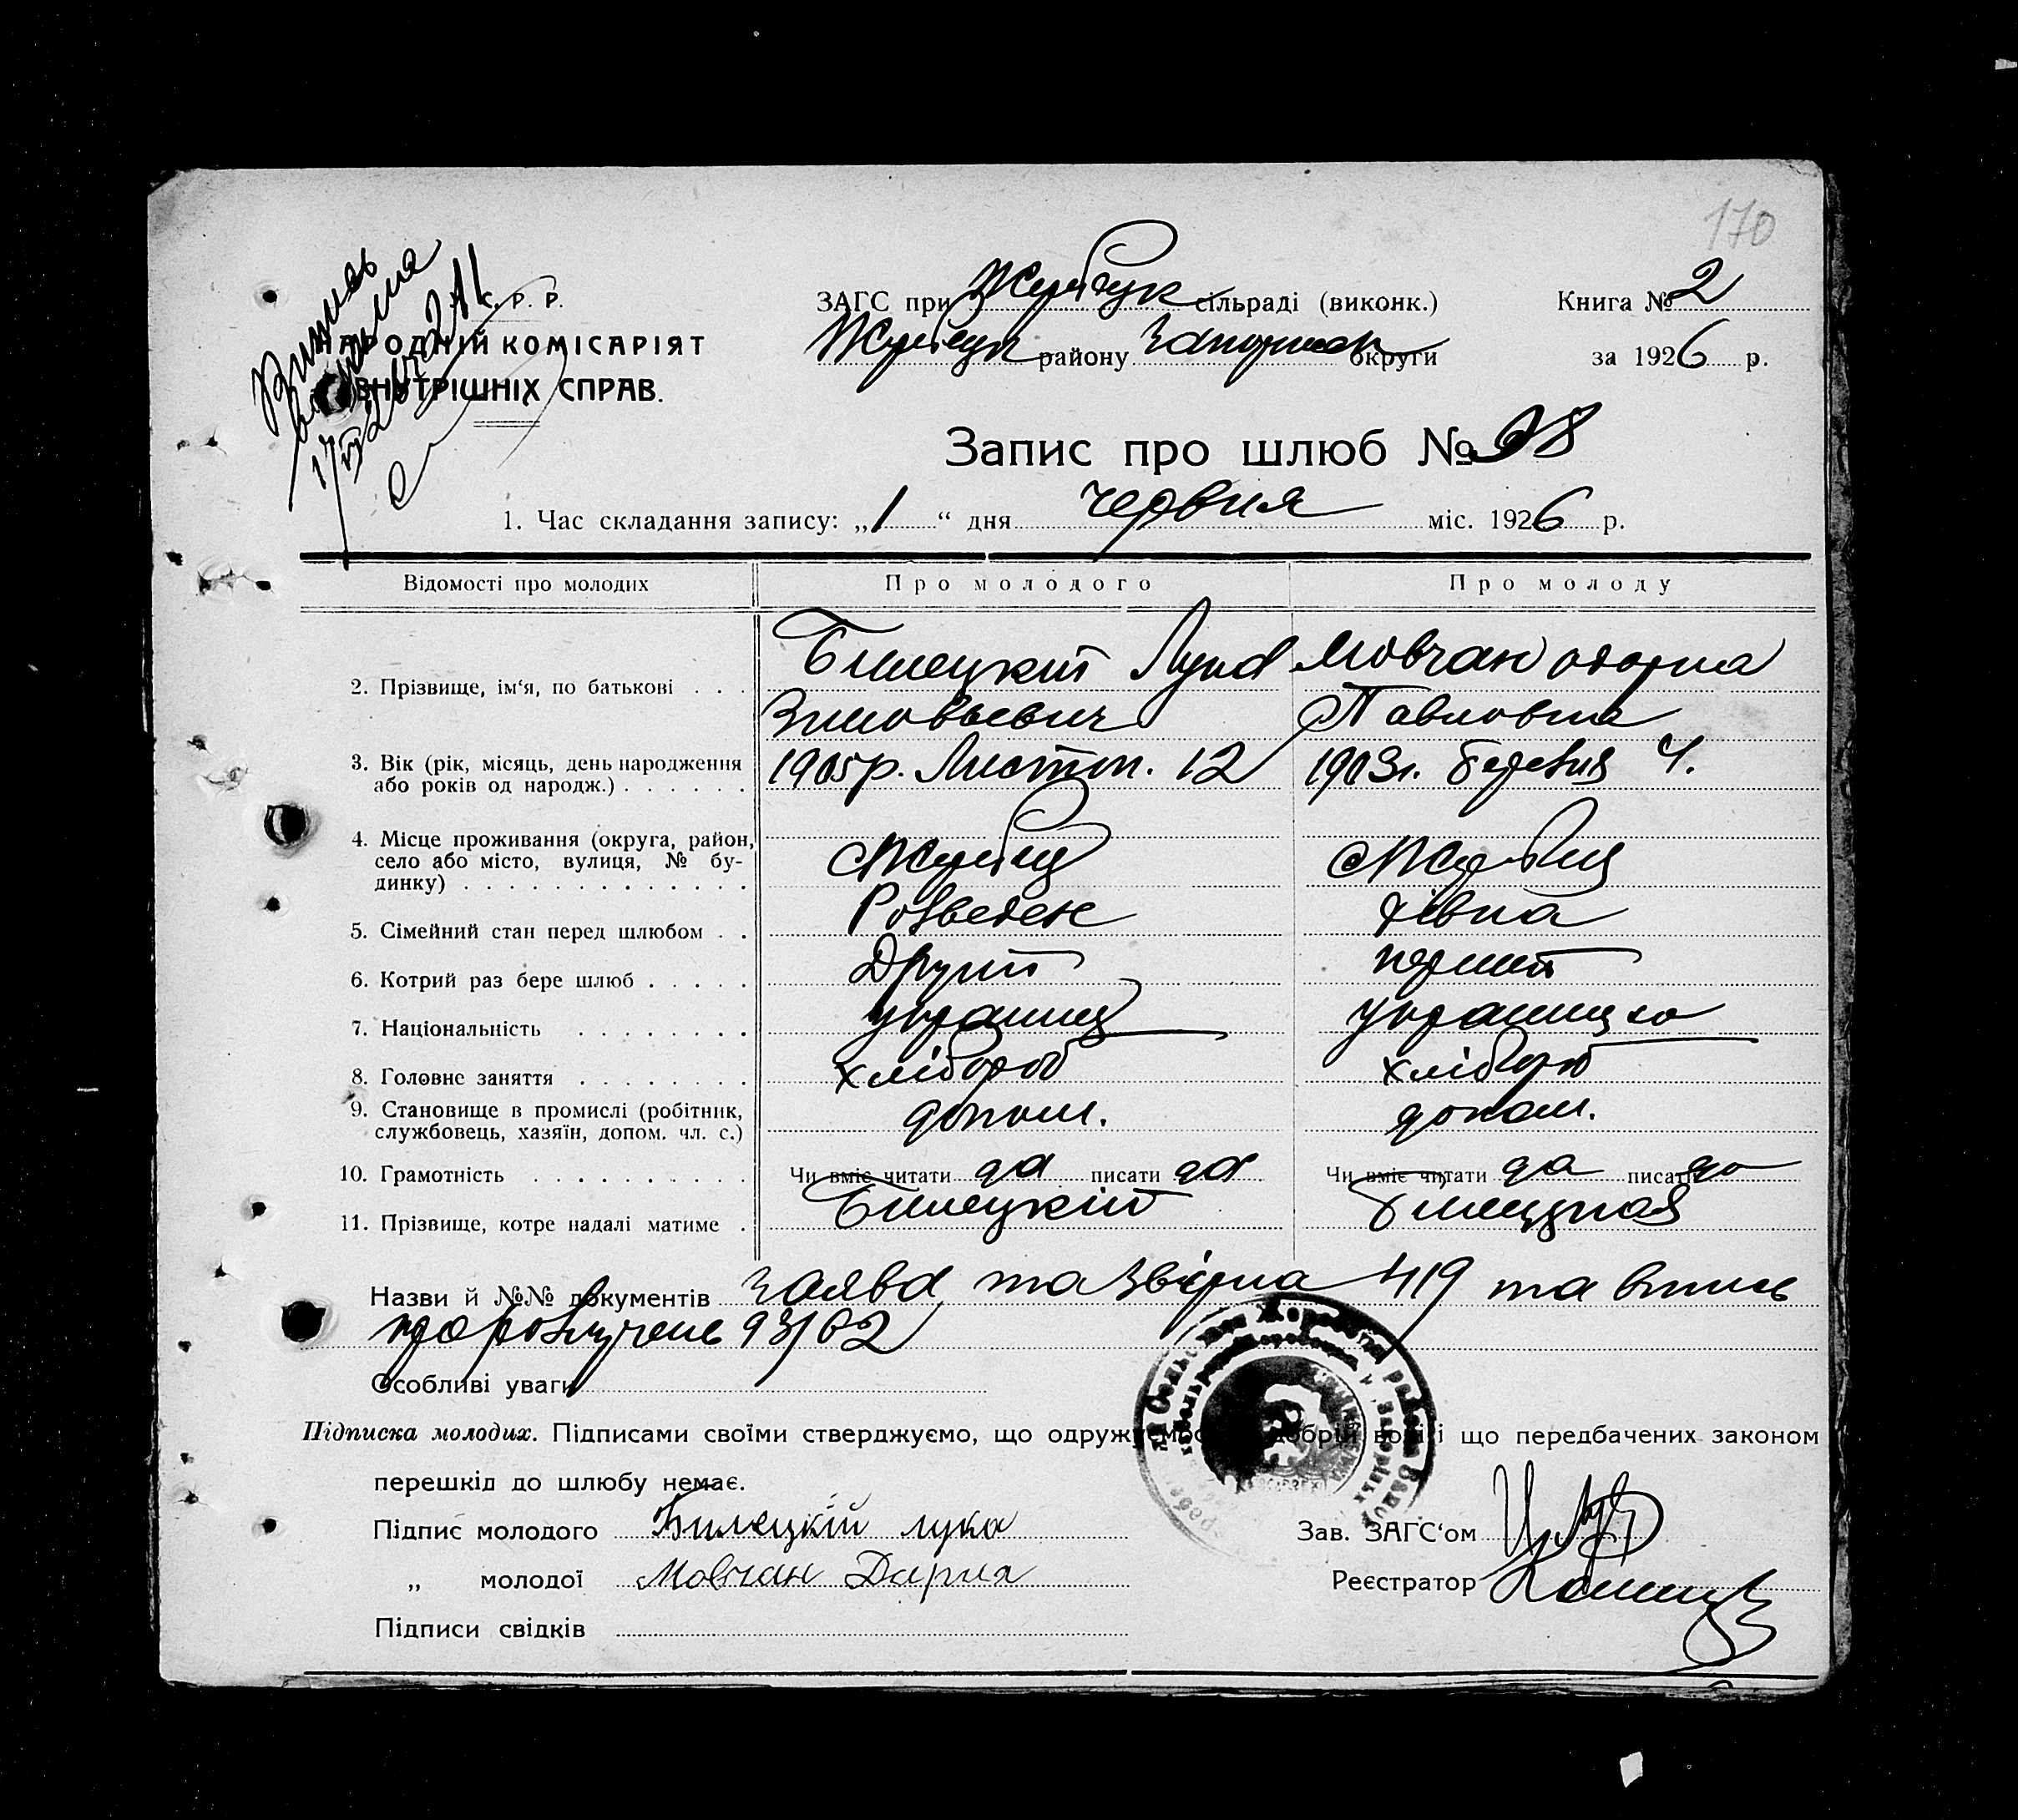 170
С. Р. Р.
НАРОДНІЙ КОМІСАРІЯТ
ВНУТРІШНІХ СПРАВ.
Выпись
ЗАГС при Жеребецк сільраді (виконк.)
Книга № 2
Жеребецк району Запориж округи
за 1926 р.
Запис про шлюб № 98
1. Час складання запису: „1“ дня червня міс. 1926 р.
Відомості про молодих
Про молодого
Про молоду
2. Прізвище, ім‘я, по батькові . . .
Билецкій Лука
Мовчан одарка
Зиновьевич
Павловна
3. Вік (рік, місяць, день народження
або років од народж.) . . . . . .
1905р. Листоп. 12
1903р. березня 4.
4. Місце проживання (округа, район,
село або місто, вулиця, № бу-
динку) . . . . . . . . . . . . .
Жеребец
Жеребец
5. Сімейний стан перед шлюбом . .
Розведен
дівка
6. Котрий раз бере шлюб . . . . .
Другий
перший
7. Національність . . . . . . .
украинец
украинцю
8. Головне заняття . . . . . . . .
хлібороб
хлібороб
9. Становище в промислі (робітник,
службовець, хазяїн, допом. чл. с.)
допом.
допом.
10. Грамотність . . . . . . . . . .
Чи вміє читати да писати да
Чи вміє читати да писати да
11. Прізвище, котре надалі матиме .
Билецкій
Билецкая
Назви й №№ документів заява та звірка 419 та впись
про розлучень 93/62
Особливі уваги
Підписка молодих. Підписами своїми стверджуємо, що одружуємось добрій волі і що передбачених законом
перешкід до шлюбу немає.
Підпис молодого Билецкій лука
Зав. ЗАГС‘ом
„ молодої Мовчан Дарья
Реєстратор
Підписи свідків